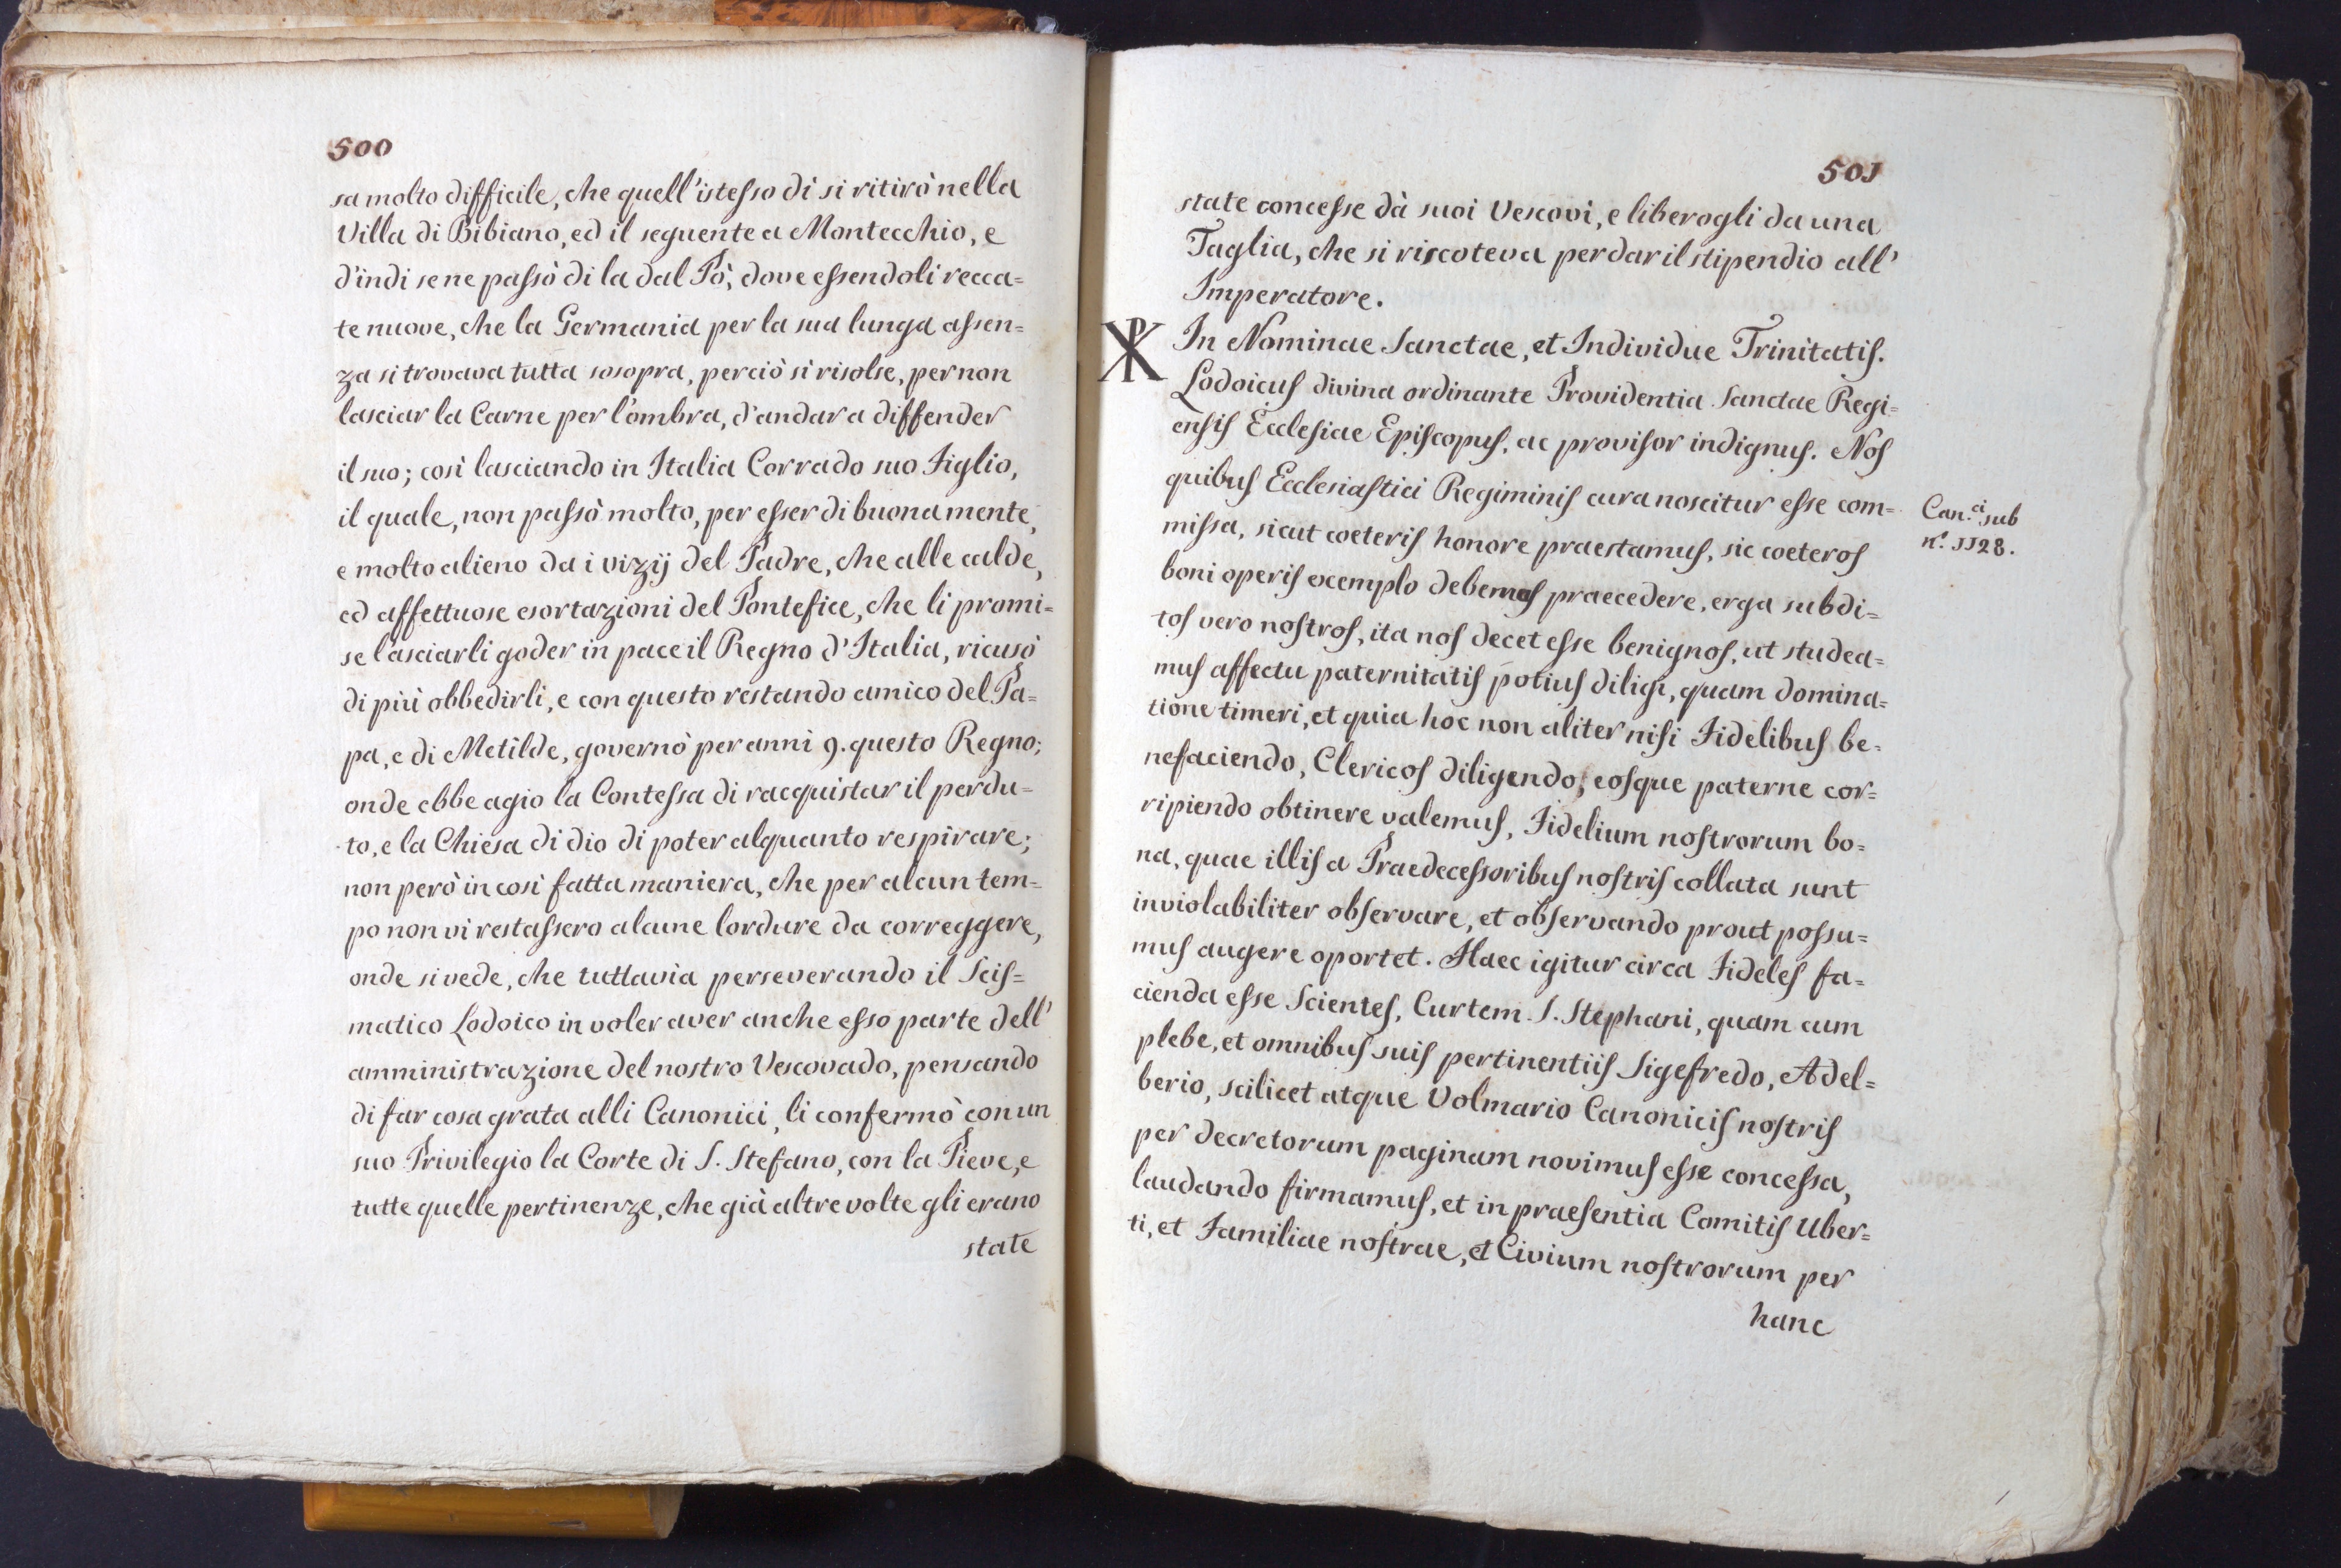 500
sa molto difficile, che quell'istesso dì si ritirò nella
Villa di Bibiano, ed il seguente a Montecchio, e
d'indi se ne passò di la dal Pò, dove essendoli recca=
te nuove, che la Germania per la sua lunga assen=
za si trovava tutta sosopra, perciò si risolse, per non
lasciar la Carne per l'ombra, d'andar a diffender
il suo; così lasciando in Italia Corrado suo Figlio,
il quale, non passò molto, per esser di buona mente,
e molto alieno da i vizij del Padre, che alle calde,
ed affettuose esortazioni del Pontefice, che li promi=
se lasciarli goder in pace il Regno d'Italia, ricusò
di più obbedirli, e con questo restando amico del Pa=
pa, e di Metilde, governò per anni 9. questo Regno;
onde ebbe agio la Contessa di racquistar il perdu=
to, e la Chiesa di dio di poter alquanto respirare;
non però in così fatta maniera, che per alcun tem=
po non vi restassero alcune lordure da correggere,
onde si vede, che tuttavia perseverando il Scis=
matico Lodoico in voler aver anche esso parte dell'
amministrazione del nostro Vescovado, pensando
di far cosa grata alli Canonici, li confermò con un
suo Privilegio la Corte di S. Stefano, con la Pieve, e
tutte quelle pertinenze, che già altre volte gli erano
state
501
state concesse dà suoi Vescovi, e liberogli da una
Taglia, che si riscoteva per dar il stipendio all'
Imperatore.
☧ In Nominae Sanctae, et Individue Trinitatis.
Lodoicus divina ordinante Providentia Sanctae Regi=
ensis Ecclesiae Episcopus, ac provisor indignus. Nos
quibus Ecclesiastici Regiminis cura noscitur esse com=
missa, sicut coeteris honore praestamus, sic coeteros
boni operis exemplo debemus praecedere, erga subdi=
tos vero nostros, ita nos decet esse benignos, ut studea=
mus affectu paternitatis potius diligi, quam domina=
tione timeri, et quia hoc non aliter nisi Fidelibus be=
nefaciendo, Clericos diligendo, eosque paterne cor=
ripiendo obtinere valemus, Fidelium nostrorum bo=
na, quae illis a Praedecessoribus nostris collata sunt
inviolabiliter observare, et observando prout possu=
mus augere oportet. Haec igitur circa Fideles fa=
cienda esse Scientes, Curtem S. Stephani, quam cum
plebe, et omnibus suis pertinentiis Sigefredo, Adel=
berio, scilicet atque Volmario Canonicis nostris
per decretorum paginam novimus esse concessa,
laudando firmamus, et in praesentia Comitis Uber=
ti, et Familiae nostrae, et Civium nostrorum per
hanc
Can.ci sub
n.º 1128.